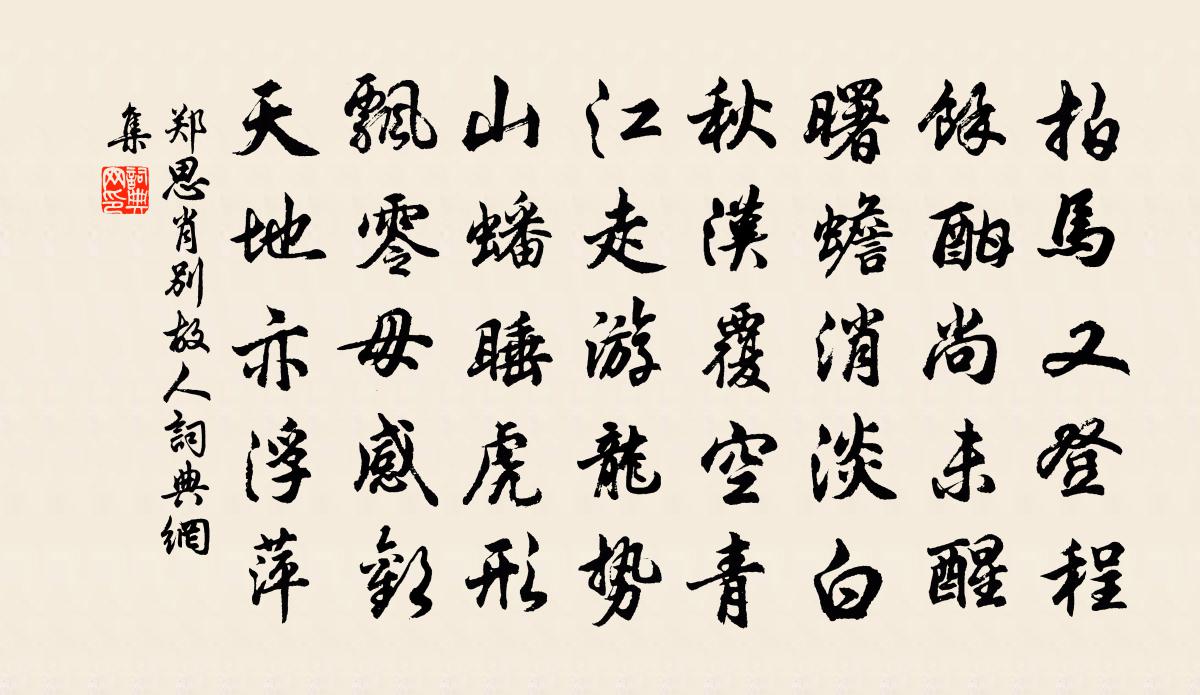 拍馬又登程
餘酣尚未醒
曙蟾消淡白
秋漢覆空青
江走游龍势
山蟠睡虎形
飄零毋感歎
天地亦浮萍
郑思肖别故人詞典網
集
詞典
网印